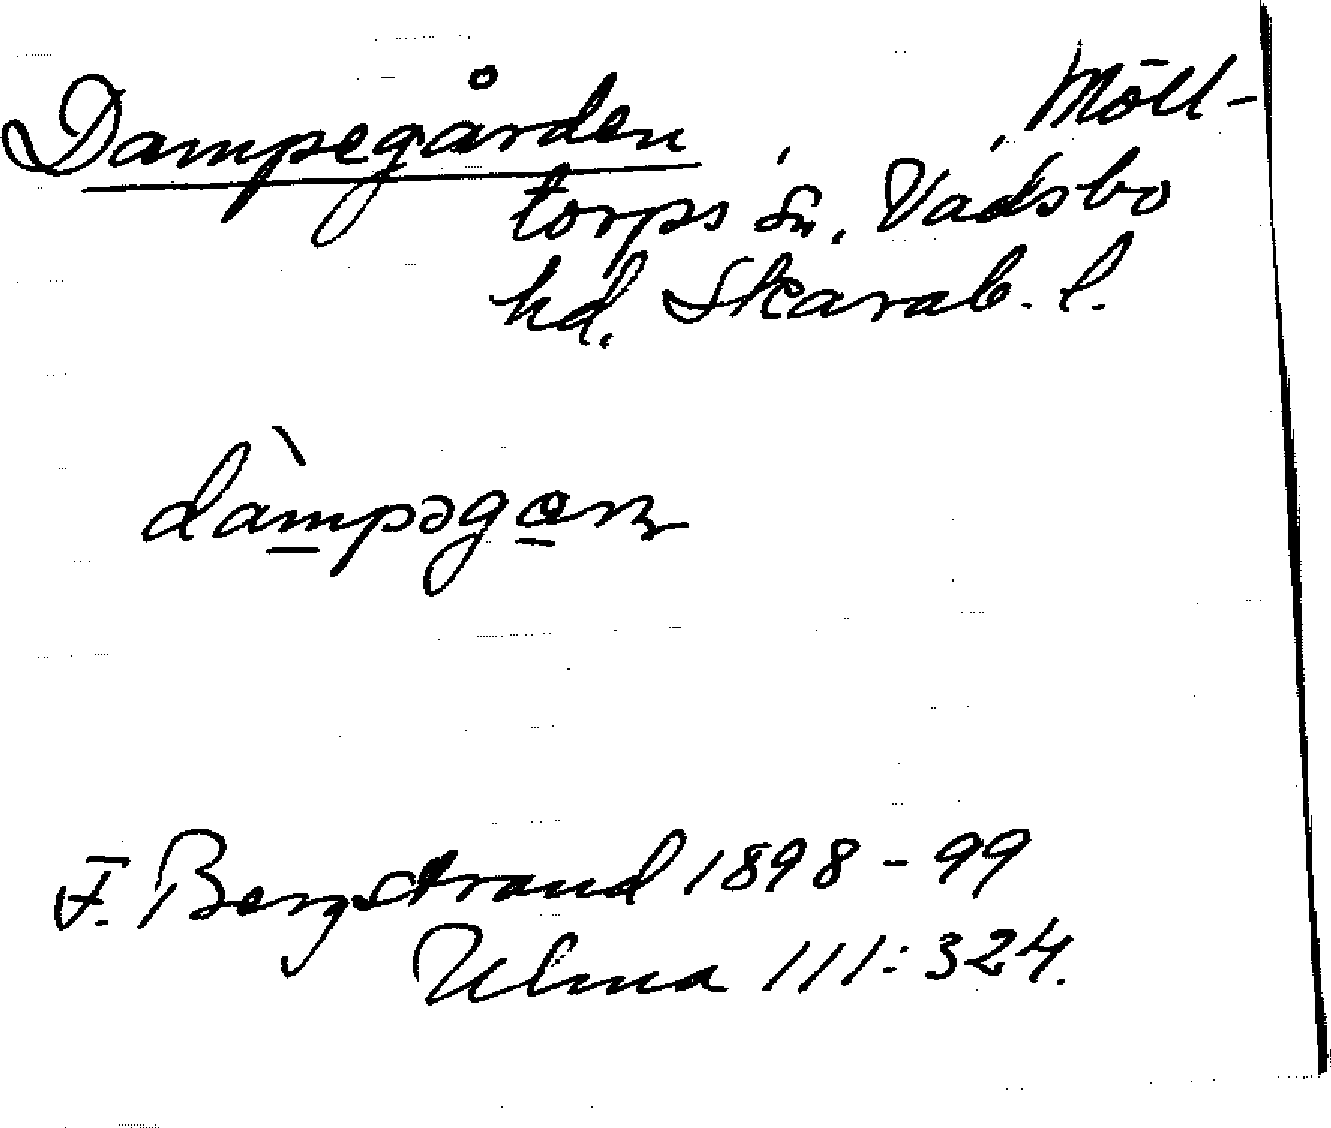 Dampegården, Möll-
torps sn. Vadsbo
hd. Skarab. l.
dàmpəgɑrn
F. Bergstrand 1898-99
Ulma 111:324.